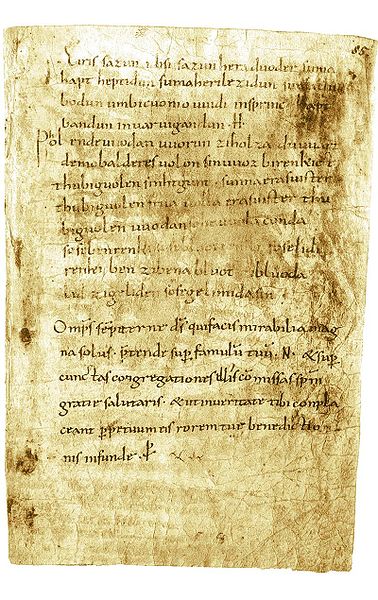 85
Eiris sazun idisi sazun hera duoder suma
hapt heptidun sumaherilezidun sumaclu
bodun umbicuoniouuidi insprinc hapt
bandun inuar uigandun· H·
Phol endeuuodan uuorun ziholza du uuart
demobalderesuolon sinuuoz birenkict
thubiguolen sinhtgunt· sunnaerasuister
thubiguolen friia uolla erasuister thu
biguolen uuodan sohe uuola conda
sosebenrenki sose bluotrenki soselidi
renki ben zibena bluot zibluoda
lid zigeliden sosegelimidasin·
Omp̄s sēpiterne ds̄ quifacis mirabilia mag
na solus· p̄tende sup̄ famulū tuū· N· & sup̄
cunctas congregationes illis cōmissas spm̄
gratie salutaris· & ut inueritate tibi conpla
ceant p̄petuum eis rorem tue benedictio
nis infunde· P